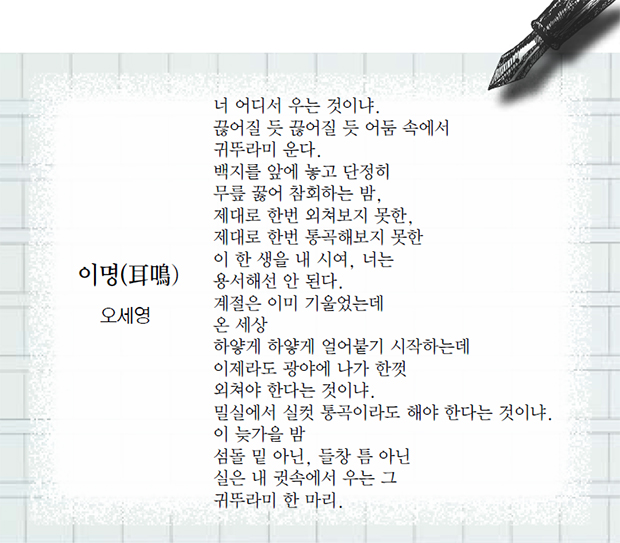 이명(耳鳴)
오세영
너 어디서 우는 것이냐.
끊어질 듯 끊어질 듯 어둠 속에서
귀뚜라미 운다.
백지를 앞에 놓고 단정히
무릎 꿇어 참회하는 밤,
제대로 한번 외쳐보지 못한,
제대로 한번 통곡해보지 못한
이 한 생을 내 시여, 너는
용서해선 안 된다.
계절은 이미 기울었는데
온 세상
하얗게 하얗게 얼어붙기 시작하는데
이제라도 광야에 나가 한껏
외쳐야 한다는 것이냐.
밀실에서 실컷 통곡이라도 해야 한다는 것이냐.
이 늦가을 밤
섬돌 밑 아닌, 들창 틈 아닌
실은 내 귓속에서 우는 그
귀뚜라미 한 마리.